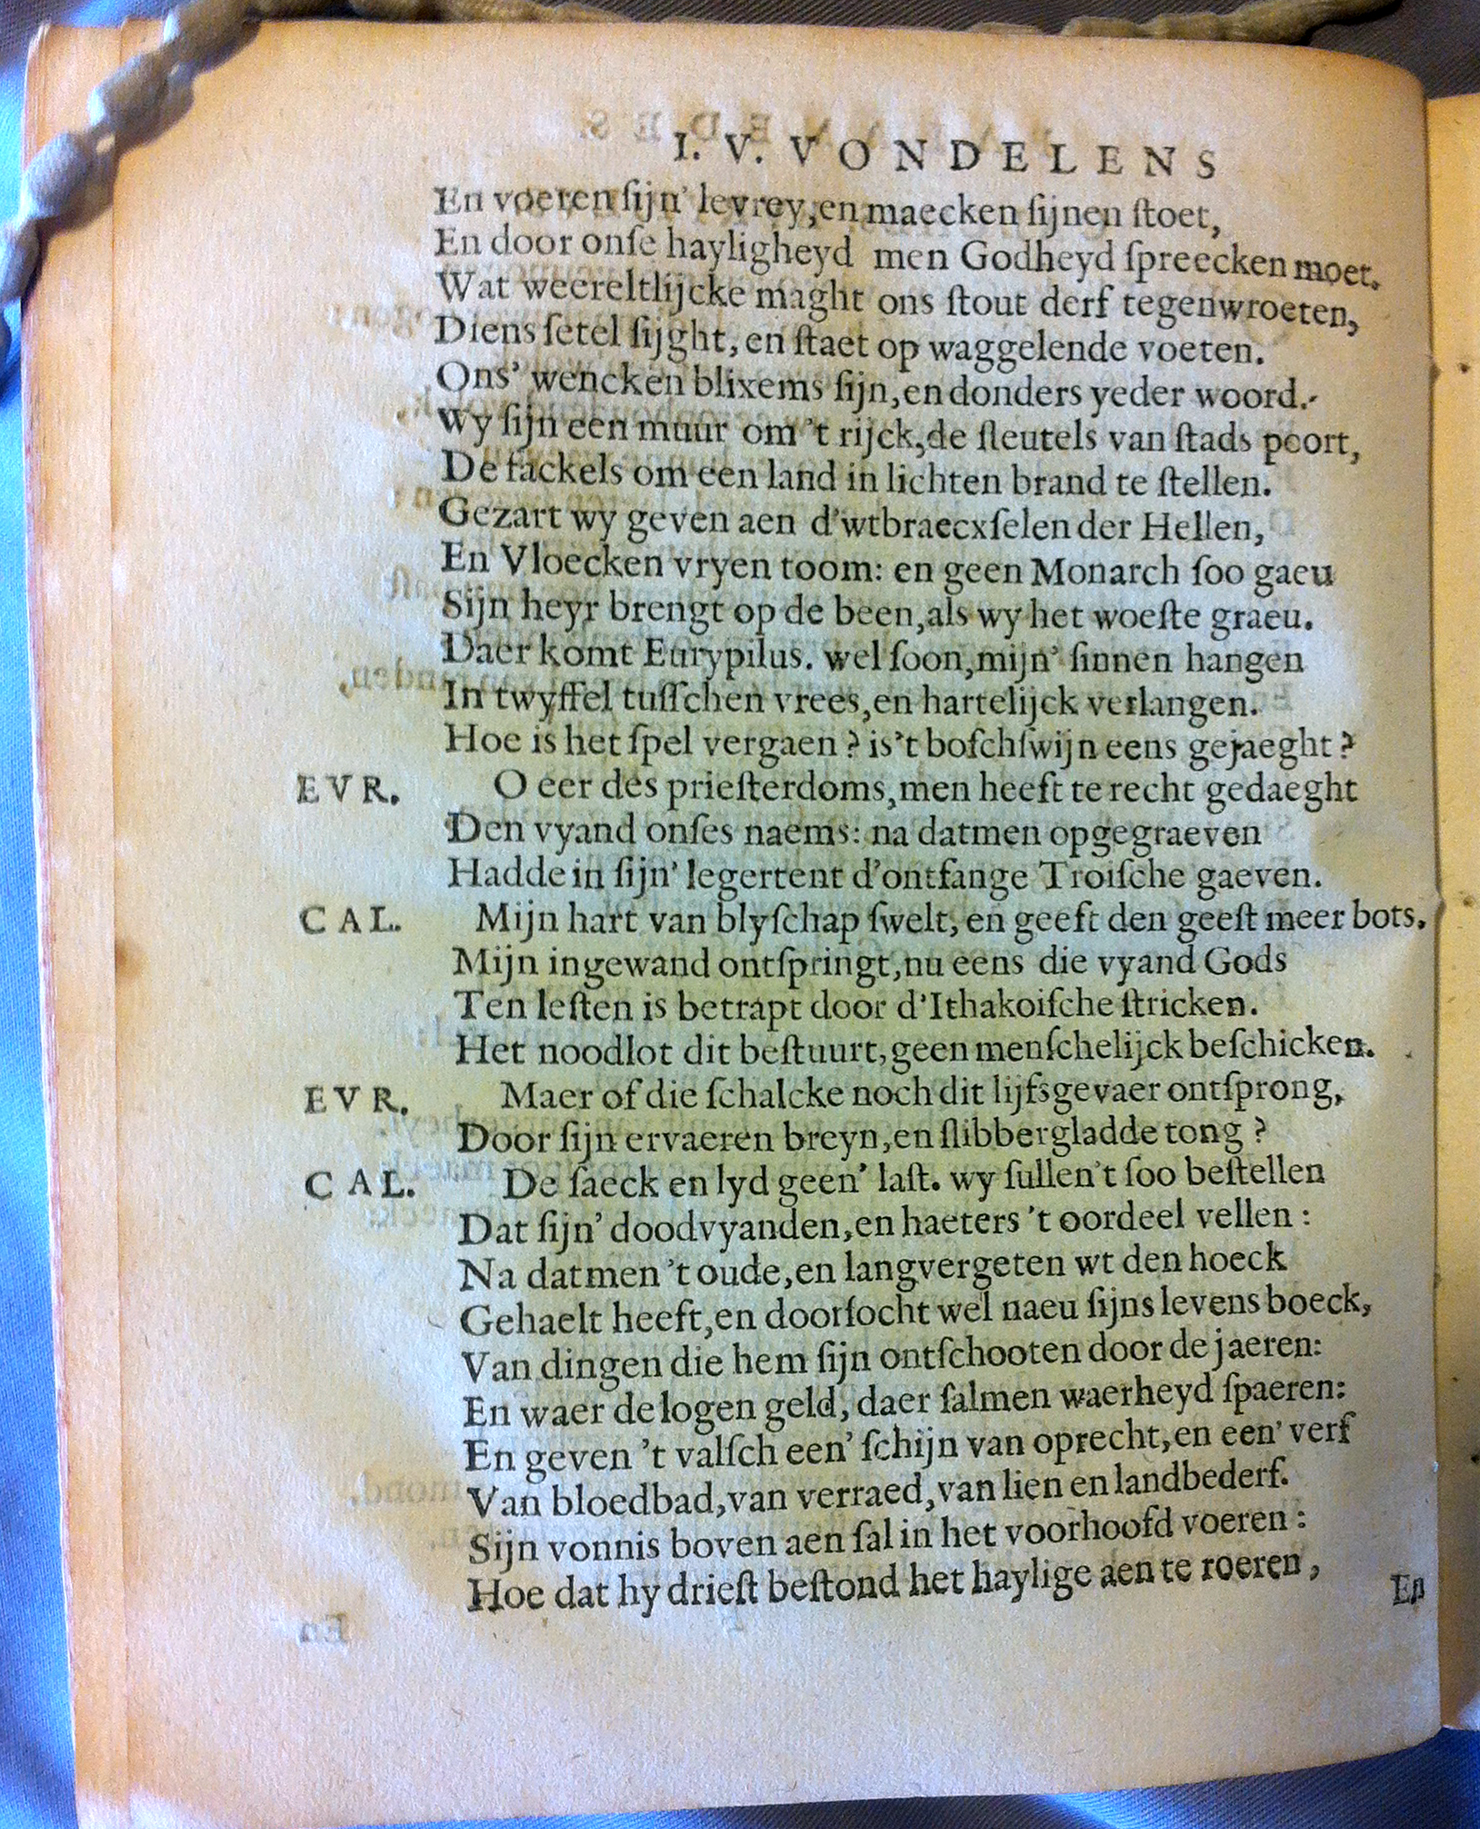 I. V. VONDELENS
En voeren ſijn' levrey, en maecken ſijnen ſtoet,
En door onſe hayligheyd men Godheyd ſpreecken moet.
Wat weereltlijcke maght ons ſtout derf tegenwroeten,
Diens ſetel ſijght, en ſtaet op waggelende voeten.
Ons' wencken blixems ſijn, en donders yeder woord.
Wy ſijn een muur om 't rijck, de ſleutels van ſtads poort,
De fackels om een land in lichten brand te ſtellen.
Gezart wy geven aen d'wtbraecxſelen der Hellen,
En Vloecken vryen toom: en geen Monarch ſoo gaeu
Sijn heyr brengt op de been, als wy het woeſte graeu.
Daer komt Eurypilus. wel ſoon, mijn' ſinnen hangen
In twyffel tuſſchen vrees, en hartelijck verlangen.
Hoe is het ſpel vergaen? is't boſchſwijn eens gejaeght?
EVR. O eer des prieſterdoms, men heeft te recht gedaeght
Den vyand onſes naems: na datmen opgegraeven
Hadde in ſijn' legertent d'ontfange Troiſche gaeven.
CAL. Mijn hart van blyſchap ſwelt, en geeft den geeſt meer bots.
Mijn ingewand ontſpringt, nu eens die vyand Gods
Ten leſten is betrapt door d'Ithakoiſche ſtricken.
Het noodlot dit beſtuurt, geen menſchelijck beſchicken.
EVR. Maer of die ſchalcke noch dit lijfsgevaer ontſprong,
Door ſijn ervaeren breyn, en ſlibbergladde tong?
CAL. De ſaeck en lyd geen' laſt. wy ſullen't ſoo beſtellen
Dat ſijn' doodvyanden, en haeters 't oordeel vellen:
Na datmen 't oude, en langvergeten wt den hoeck
Gehaelt heeft, en doorſocht wel naeu ſijns levens boeck,
Van dingen die hem ſijn ontſchooten door de jaeren:
En waer de logen geld, daer ſalmen waerheyd ſpaeren:
En geven 't valſch een' ſchijn van oprecht, en een' verf
Van bloedbad, van verraed, van lien en landbederf.
Sijn vonnis boven aen ſal in het voorhoofd voeren:
Hoe dat hy drieſt beſtond het haylige aen te roeren,
En